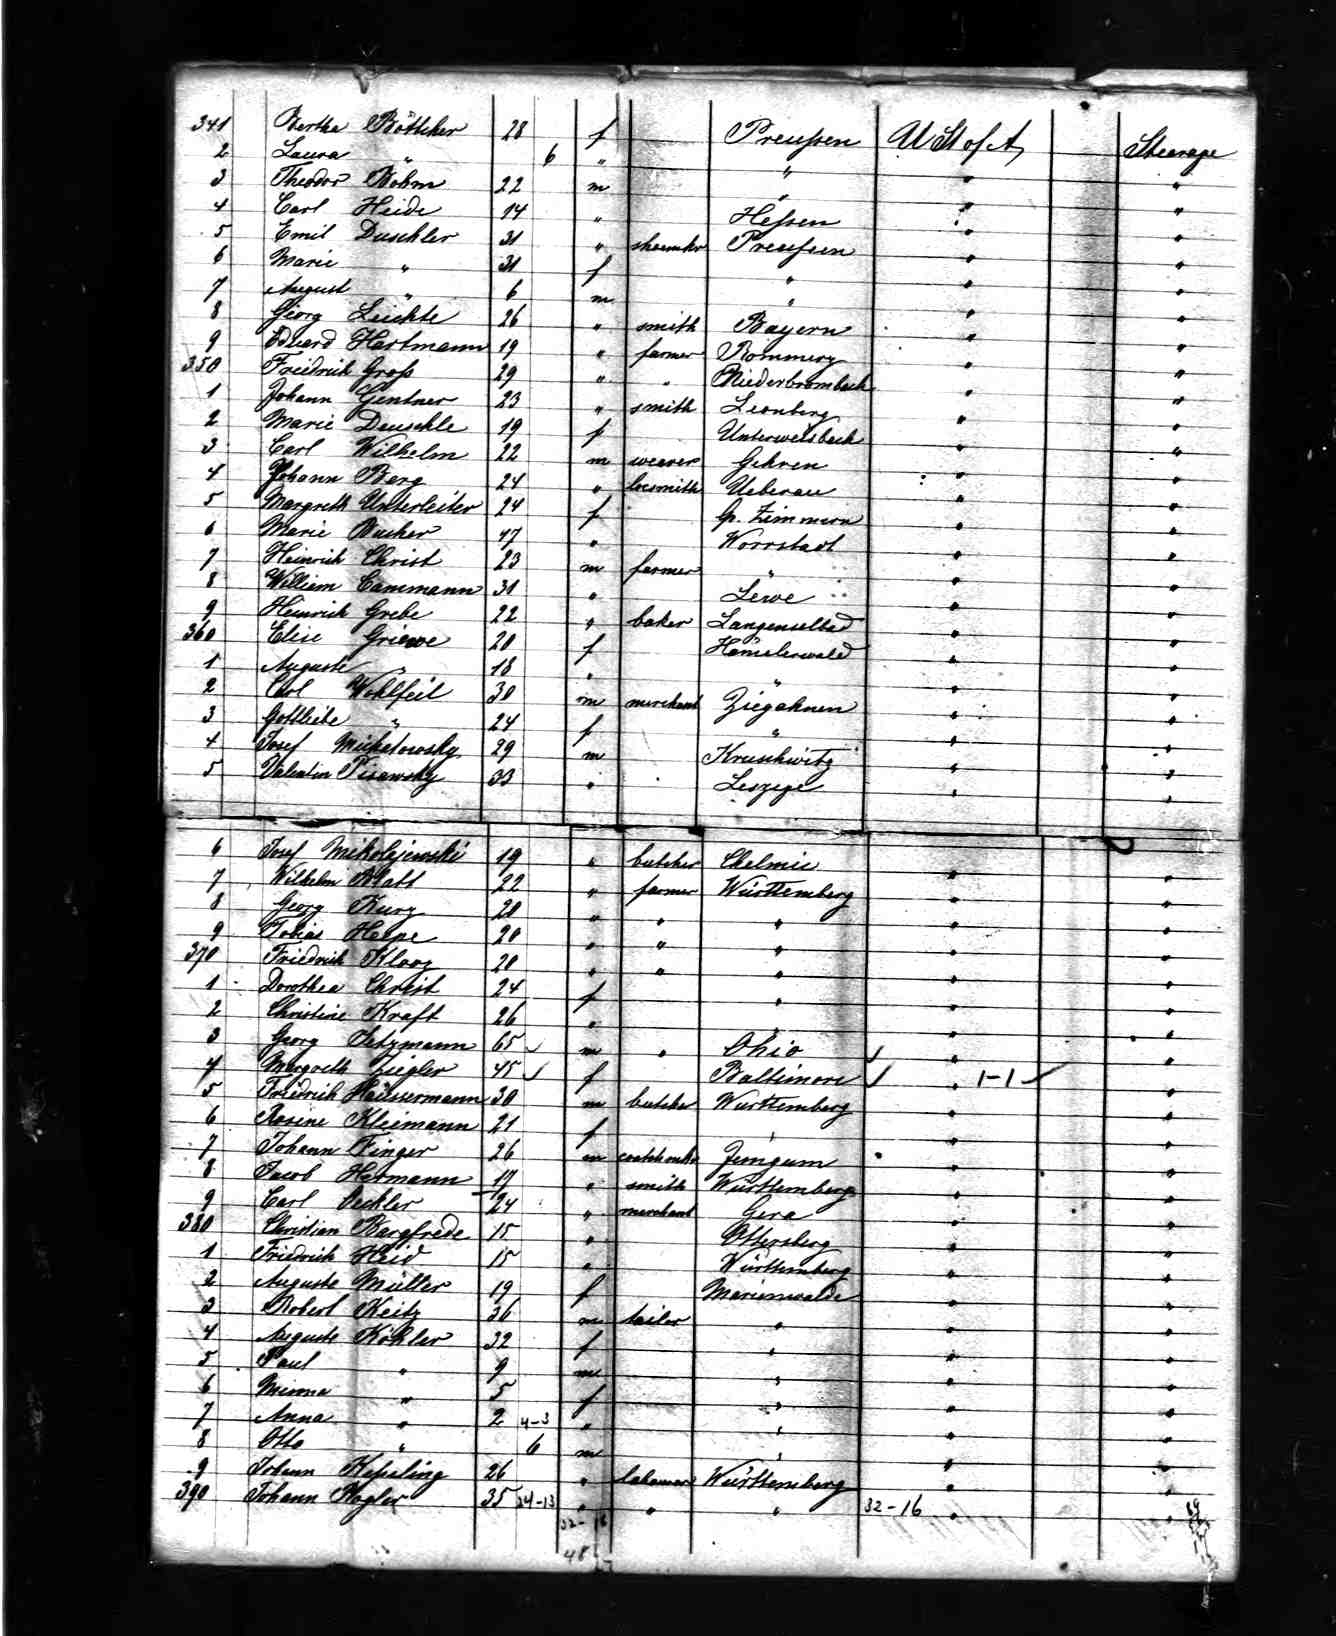 341 Bertha Böttcher 28 f Preußen U St of A, Stearage
2 Laura " 6 " " " "
3 Theodor Böhm 22 m " " "
4 Carl Heide 14 " Heßen " "
5 Emil Duschler 31 " shoemkr Preußen " "
6 Marie " 31 f " " "
7 August " 6 m " " "
8 Georg Leichte 26 " smith Bayern " "
9 Eduard Hartmann 19 " farmer " "
350 Friedrich Groß 29 " " Niederbrombach " "
1 Johann Gentner 23 " smith Leonberg " "
2 Marie Deuschle 19 f Unterweisbach " "
3 Carl Wilhelm 22 m weaver Gehren " "
4 Johann Berg 24 " locsmith Ueberau " "
5 Margreth Unterleiter 24 f Gr. Zimmern " "
6 Marie Bucher 17 " Worrstadt " "
7 Heinrich Christ 23 m farmer " " "
8 William Cammann 31 " Lewe " "
9 Heinrich Grebe 22 " baker Langenselbed " "
360 Elise Griewe 20 f Hämelerwald " "
1 Auguste " 18 " " " "
2 Carl Wohlfeil 30 m merchant Ziegahnen " "
3 Gottliebe " 24 f " " "
4 Josef Michalowsky 29 m Kruschwitz " "
5 Valentin Pisawsky 33 " Leszege " "
6 Josef Mikolajewski 19 " butcher Chelmie " "
7 Wilhelm Blatt 22 " farmer Württemberg " "
8 Georg Kurz 20 " " " " "
9 Tobias 20 " " " " "
370 Friedrich Klooz 20 " " " " "
1 Dorothea Christ 24 f " " "
2 Christine Kraft 26 " " " "
3 Georg Jetzmann 65 m " Ohio " "
4 Margreth Ziegler 45 f Baltimore " 1-1 "
5 Friedrich Häussermann 30 m butcher Württemberg " "
6 Rosine Kleimann 21 f " " "
7 Johann Finger 26 m Jemgum " "
8 Jacob Hermann 17 " smith Württemberg " "
9 Carl Oechler 24 " merchant Gera " "
380 Christian Bargfrede 15 " Ottersberg " "
1 Friedrich Heid 15 " Württemberg " "
2 Auguste Müller 19 f Marienwalde " "
3 Robert Reitz 36 m tailor " " "
4 Auguste Köhler 32 f " " "
5 Paul " 9 m " " "
6 Minna " 5 f " " "
7 Anna " 2 4-3 " " " "
8 Otto " 6 m " " "
9 Johann Keßeling 26 " labourer Württemberg " "
390 Johann Vogler 35 34-13 " " " 32-16 " "
32-16
48